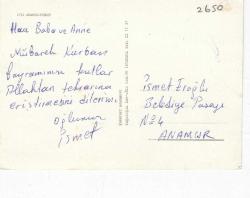 2650
Hacı Baba ve Anne
Mübarek Kurban
bayramınızı kutlar
Allahtan tekrarına
eriştirmesini dilerim.
oğlunuz
İsmet
İsmet Eroğlu
Belediye Pasajı
No 24
ANAMUR